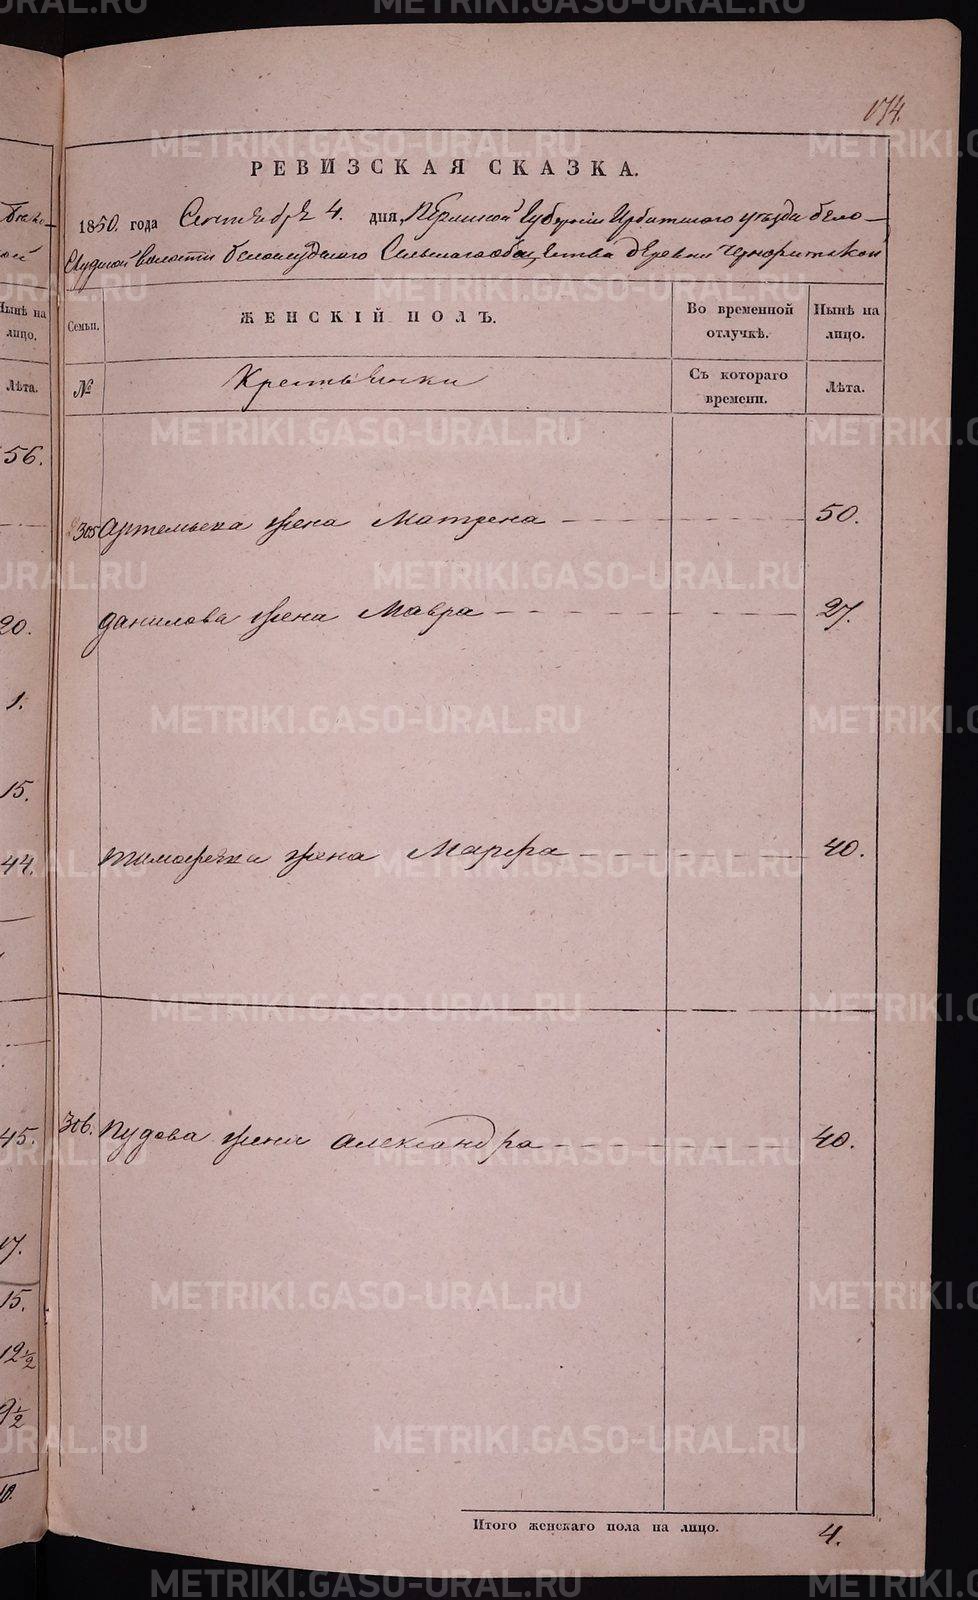 174.
РЕВИЗСКАЯ СКАЗКА.
1850. года Сентября 4. дня, Пермской Губернии Ирбитского уезда бело-
слудской волости белослудского Сельскаго общества деревни Чернорицкой
Семьи.
ЖЕНСКІЙ ПОЛЪ.
Во временной отлучкѣ.
Нынѣ на лицо.
№
Крестьянки
Съ котораго времени.
Лѣта.
305 Артемьева жена Матрена 50.
Данилова жена Мавра 27.
Тимофеева жена Марфа 40.
306. Пудова жена Александра 40.
Итого женскаго пола на лицо. 4.
Нынѣ на
лицо.
Лѣта.
56.
20.
1.
15.
44.
45.
17.
15.
12 1/2
METRIKI.GASO-URAL.RU